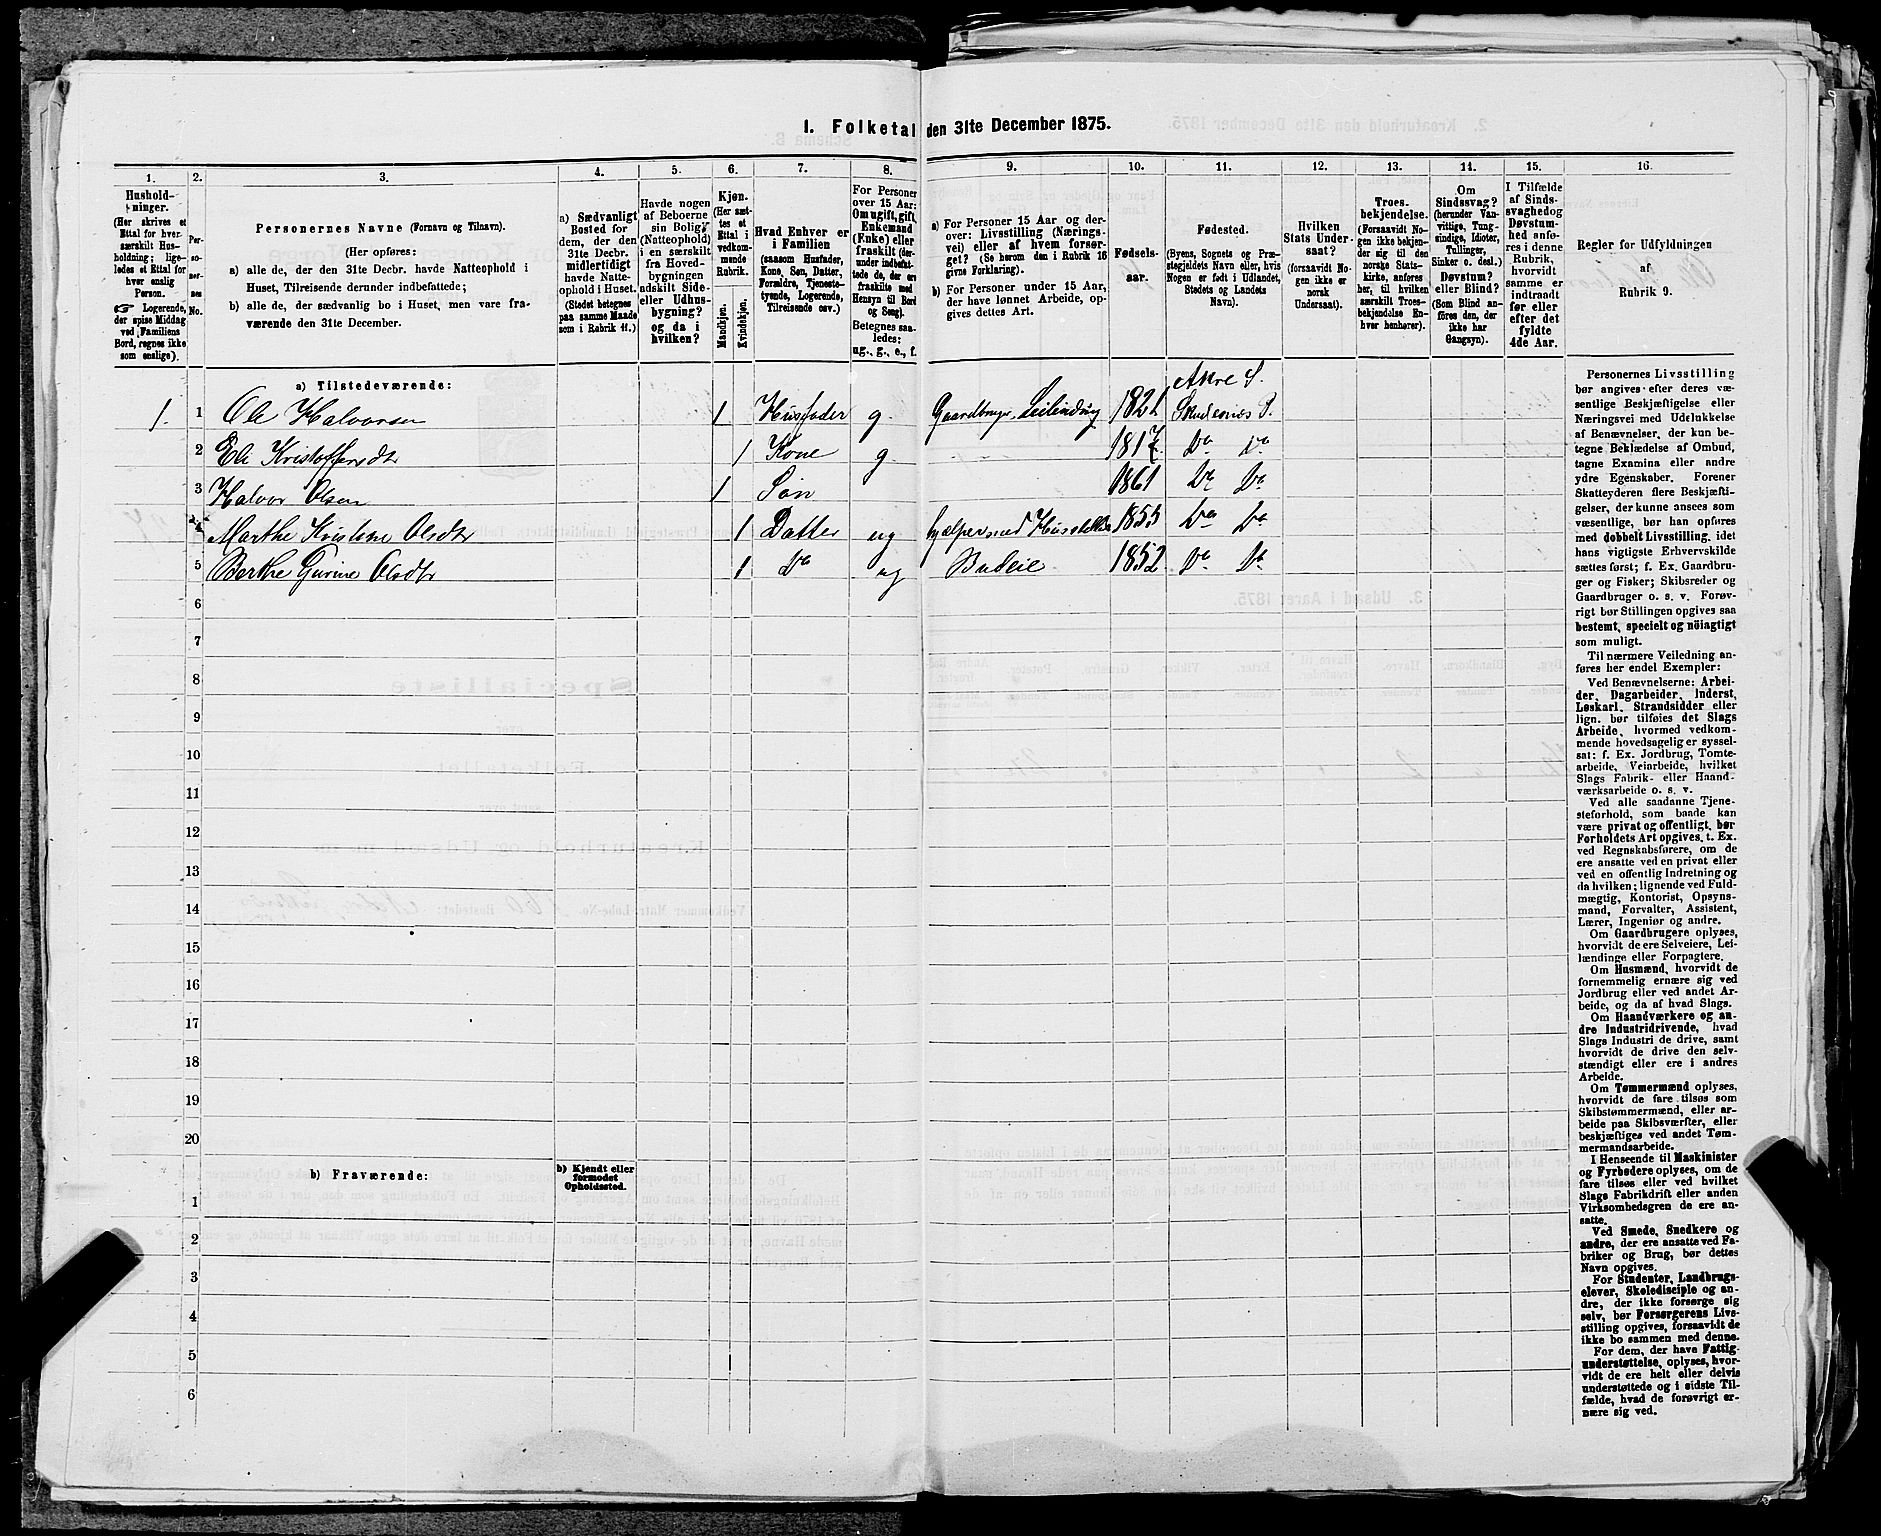 1. Folketal den 31te December 1875.
1.
Hushold-
ninger.
(Her skrives et
Ettal for hver
særskilt Hus-
holdning; lige-
ledes et Ettal for
hver enslig
Person.
Logerende,
der spise Middag
ved Familiens
Bord, regnes ikke
som enslige).
2.
Per-
so-
ner-
nes
No.
3.
Personernes Navne (Fornavn og Tilnavn).
(Her opføres:
a) alle de, der den 31te Decbr. havde Natteophold i
Huset, Tilreisende derunder indbefattede;
b) alle de, der sædvanlig bo i Huset, men vare fra-
værende den 31te December.
4.
a) Sædvanligt
Bosted for
dem, der den
31te Decbr.
midlertidigt
havde Natte-
ophold i Huset.
(Stedet betegnes
paa samme Maade
som i Rubrik 11.)
5.
Havde nogen
af Beboerne
sin Bolig
(Natteophold)
i en særskilt
fra Hoved-
bygningen
adskilt Side-
eller Udhus-
bygning?
og da i
hvilken?
6.
Kjøn.
(Her sæt-
tes et
Ettal i
vedkom-
mende
Rubrik.
Mandkjøn.
Kvindekjøn.
7.
Hvad Enhver er
i Familien
(saasom Husfader,
Kone, Søn, Datter,
Forældre, Tjeneste-
tyende, Logerende,
Tilreisende osv.)
8.
For Personer
over 15 Aar:
Om ugift, gift,
Enkemand
(Enke) eller
fraskilt (der-
under indbefat-
tede de, der ere
fraskilte med
Hensyn til Bord
og Seng).
Betegnes saa-
ledes:
ug., g., e., f.
9.
a) For Personer 15 Aar og der-
over: Livsstilling (Nærings-
vei) eller af hvem forsør-
get? (Se herom den i Rubrik 16
givne Forklaring).
b) For Personer under 15 Aar,
der have lønnet Arbeide, op-
gives dettes Art.
10.
Fødsels-
aar.
11.
Fødested.
(Byens, Sognets og Præ-
stegjeldets Navn eller, hvis
Nogen er født i Udlandet,
Stedets og Landets
Navn).
12.
Hvilken
Stats Under-
saat?
(forsaavidt No-
gen ikke er
norsk
Undersaat).
13.
Troes-
bekjendelse.
(Forsaavidt No-
gen ikke bekjen-
der sig til den
norske Stats-
kirke, anføres
her, til hvilken
særskilt Troes-
bekjendelse En-
hver henhører).
14.
Om
Sindssvag?
(herunder Van-
vittige, Tung-
sindige, Idioter,
Tullinger,
Sinker o. desl.)
Døvstum?
eller Blind?
(Som Blind an-
føres den, der
ikke har
Gangsyn).
15.
I Tilfælde
af Sinds-
svaghed og
Døvstum-
hed anfø-
res i denne
Rubrik,
hvorvidt
samme er
indtraadt
før eller
efter det
fyldte
4de Aar.
16.
Regler for Udfyldningen
af
Rubrik 9.
a) Tilstedeværende:
Akre S.
1. 1 Ole Halvorsen 1 Husfader g. Gaardbruger, Leilending 1821 Skudesnes P.
2 Eli Kristoffersdtr 1 Kone g. 1817 Do Do
3 Halvor Olsen 1 Søn 1861 Do Do
4 Marthe Kristine Olsdtr 1 Datter ug hjælper med Husstellet 1855 Do Do
5 Berthe Gurine Olsdtr 1 Do ug Budeie 1852 Do Do
6
7
8
9
10
11
12
13
14
15
16
17
18
19
20
b) Fraværende:
b) Kjendt eller
formodet
Opholdssted.
1
2
3
4
5
6
Personernes Livsstilling
bør angives efter deres væ-
sentlige Beskjæftigelse eller
Næringsvei med Udelukkelse
af Benævnelser, der kun be-
tegne Beklædelse af Ombud,
tagne Examina eller andre
ydre Egenskaber. Forener
Skatteyderen flere Beskjæfti-
gelser, der kunne ansees som
væsentlige, bør han opføres
med dobbelt Livsstilling, idet
hans vigtigste Erhvervskilde
sættes først; f. Ex. Gaardbru-
ger og Fisker; Skibsreder og
Gaardbruger o. s. v. Forøv-
rigt bør Stillingen opgives saa
bestemt, specielt og nöiagtigt
som muligt.
Til nærmere Veiledning an-
føres her endel Exempler:
Ved Benævnelserne: Arbei-
der, Dagarbeider, Inderst,
Løskarl, Strandsidder eller
lign. bør tilføies det Slags
Arbeide, hvormed vedkom-
mende hovedsagelig er syssel-
sat; f. Ex. Jordbrug, Tomte-
arbeide, Veiarbeide, hvilket
Slags Fabrik- eller Haand-
værksarbeide o. s. v.
Ved alle saadanne Tjene-
steforhold, som baade kan
være privat og offentligt, bør
Forholdets Art opgives, t. Ex.
ved Regnskabsførere, om de
ere ansatte ved en privat eller
ved en offentlig Indretning og
da hvilken; lignende ved Fuld-
mægtig, Kontorist, Opsyns-
mand, Forvalter, Assistent,
Lærer, Ingeniør og andre.
Om Gaardbrugere oplyses,
hvorvidt de ere Selveiere, Lei-
lændinge eller Forpagtere.
Om Husmænd, hvorvidt de
fornemmelig ernære sig ved
Jordbrug eller ved andet Ar-
beide, og da af hvad Slags.
Om Haandværkere og an-
dre Industridrivende, hvad
Slags Industri de drive, samt
hvorvidt de drive den selv-
stændigt eller ere i andres
Arbeide.
Om Tømmermænd oplyses,
hvorvidt de fare tilsøs som
Skibstømmermænd, eller ar-
beide paa Skibsværfter, eller
beskjæftiges ved andet Tøm-
mermandsarbeide.
I Henseende til Maskinister
og Fyrbødere oplyses, om de
fare tilsøs eller ved hvilket
Slags Fabrikdrift eller anden
Virksomhedsgren de ere an-
satte.
Ved Smede, Snedkere og
andre, der ere ansatte ved Fa-
briker og Brug, bør dettes
Navn opgives.
For Studenter, Landbrugs-
elever, Skoledisciple og an-
dre, der ikke forsørge sig
selv, bør Forsørgerens Livs-
stilling opgives, forsaavidt de
ikke bo sammen med denne.
For dem, der have Fattig-
understøttelse, oplyses, hvor-
vidt de ere helt eller delvis
understøttede og i sidste Til-
fælde, hvad de forøvrigt er-
nære sig ved.